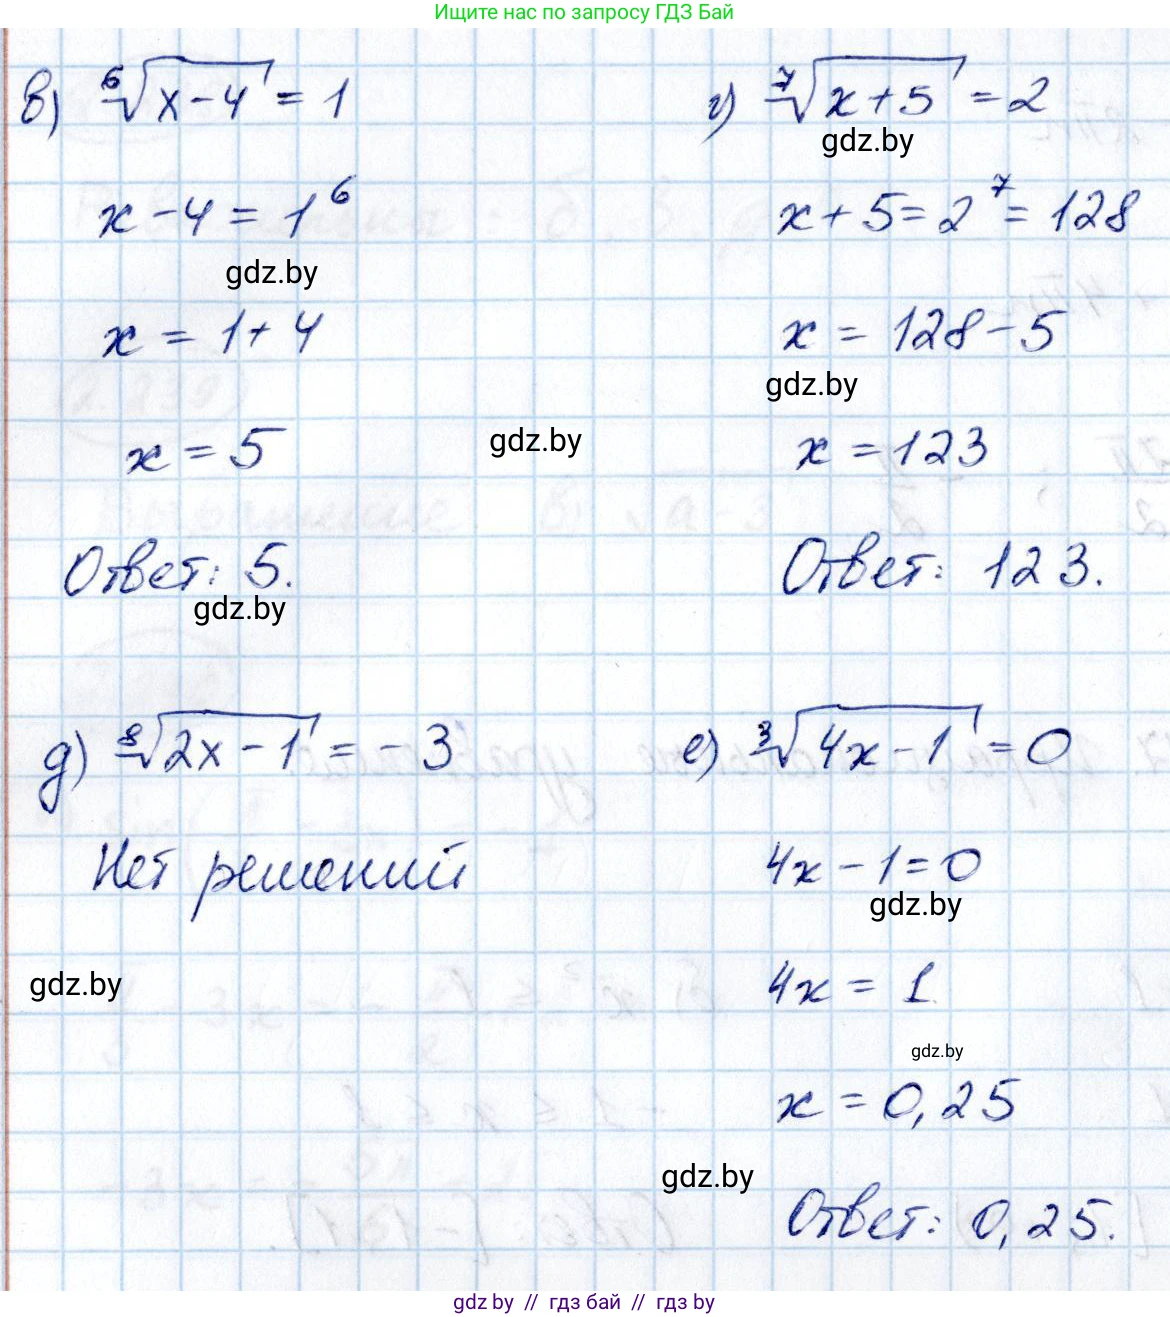 Ищите нас по запросу ГДЗ Бай
в) ⁶√(x-4) = 1
x - 4 = 1⁶
gdz.by
x = 1 + 4
x = 5
gdz.by
Ответ: 5.
gdz.by
г) ⁷√(x+5) = 2
gdz.by
x + 5 = 2⁷ = 128
x = 128 - 5
gdz.by
x = 123
Ответ: 123.
д) ⁸√(2x-1) = -3
Нет решений
gdz.by
е) ³√(4x-1) = 0
4x - 1 = 0
gdz.by
4x = 1
gdz.by
x = 0,25
gdz.by
Ответ: 0,25.
gdz.by // гдз бай // gdz.by